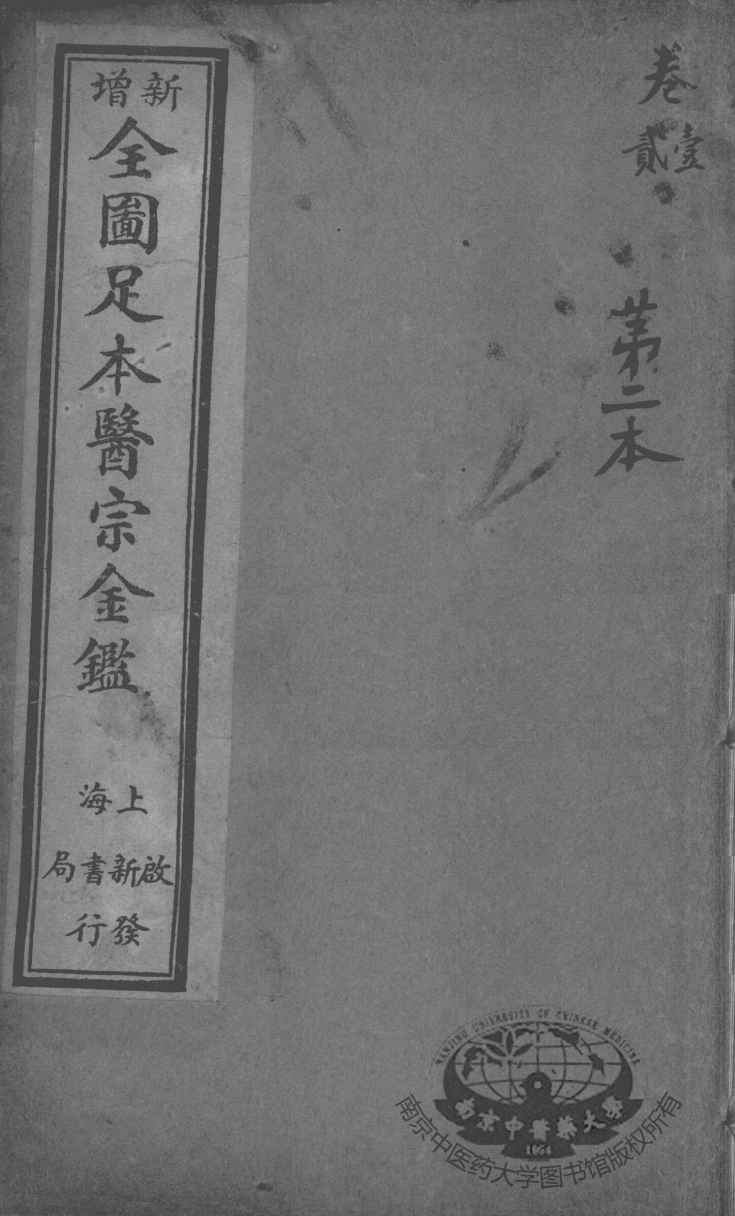 卷
壹
貳
苐二本
新增
全圖足本醫宗金鑑
上海
啟新書局
發行
NANJING UNIVERSITY OF CHINESE MEDICINE
南京中醫藥大學
1954
南京中医药大学图书馆版权所有